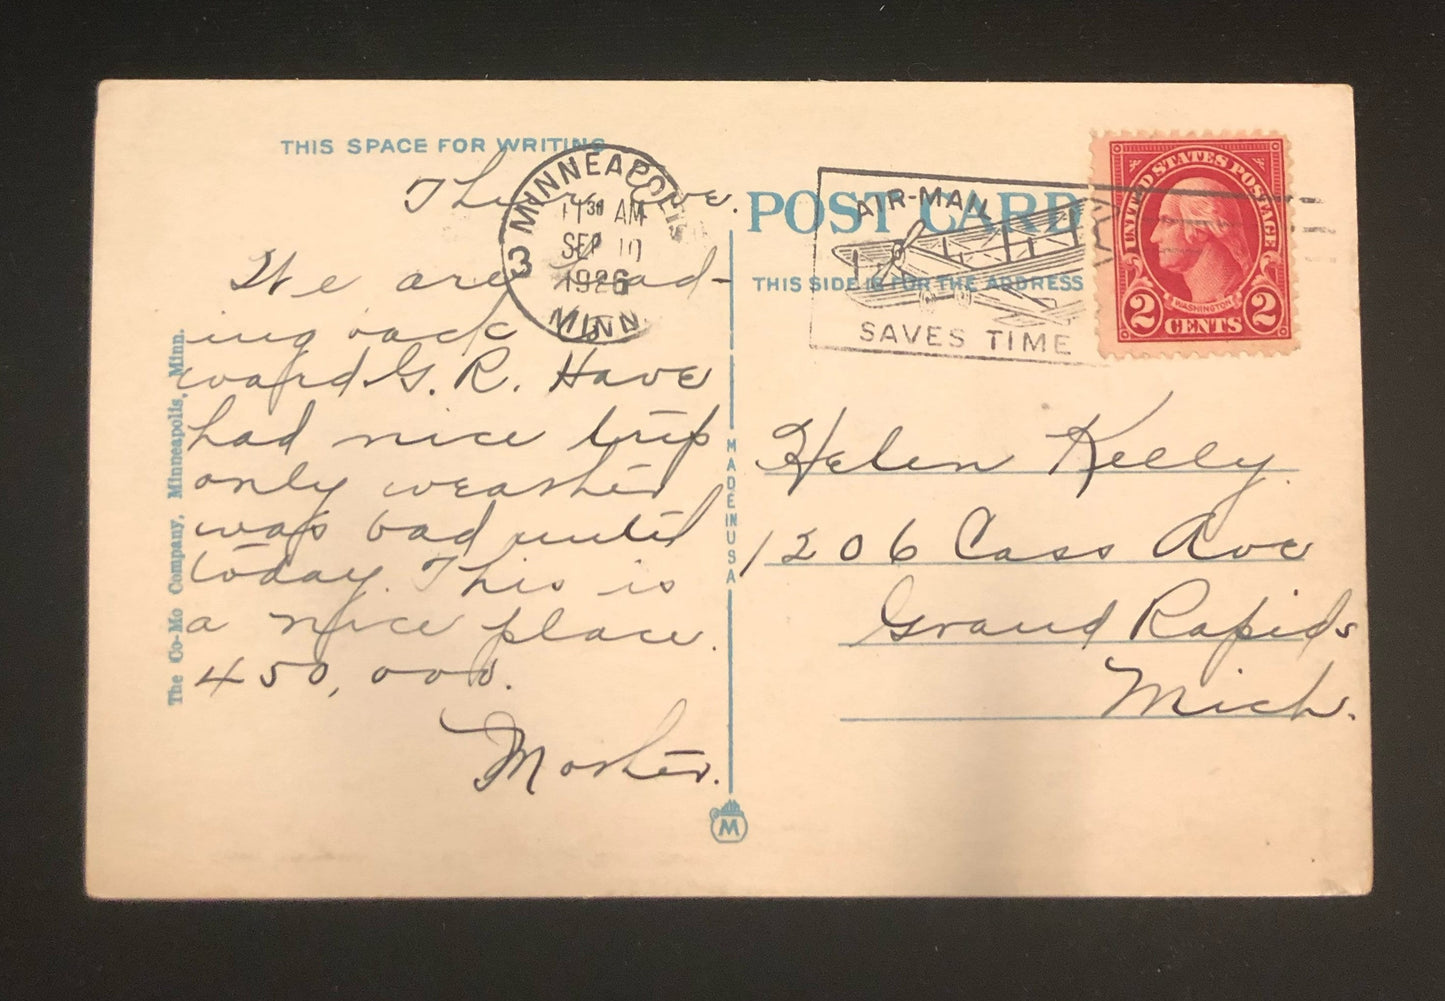 THIS SPACE FOR WRITING
Thur Eve.
We are head-
ing back to-
ward G. R. Have
had nice trip
only weather
was bad until
today. This is
a nice place.
450,000.
Mother.
The Co-Mo Company, Minneapolis, Minn.
MADE IN USA
M
MINNEAPOLIS
3
11 30 AM
SEP 10
1926
MINN.
POST CARD
THIS SIDE IS FOR THE ADDRESS
AIR-MAIL
SAVES TIME
UNITED STATES POSTAGE
WASHINGTON
2 CENTS 2
Helen Kelly
1206 Cass Ave
Grand Rapids
Mich.